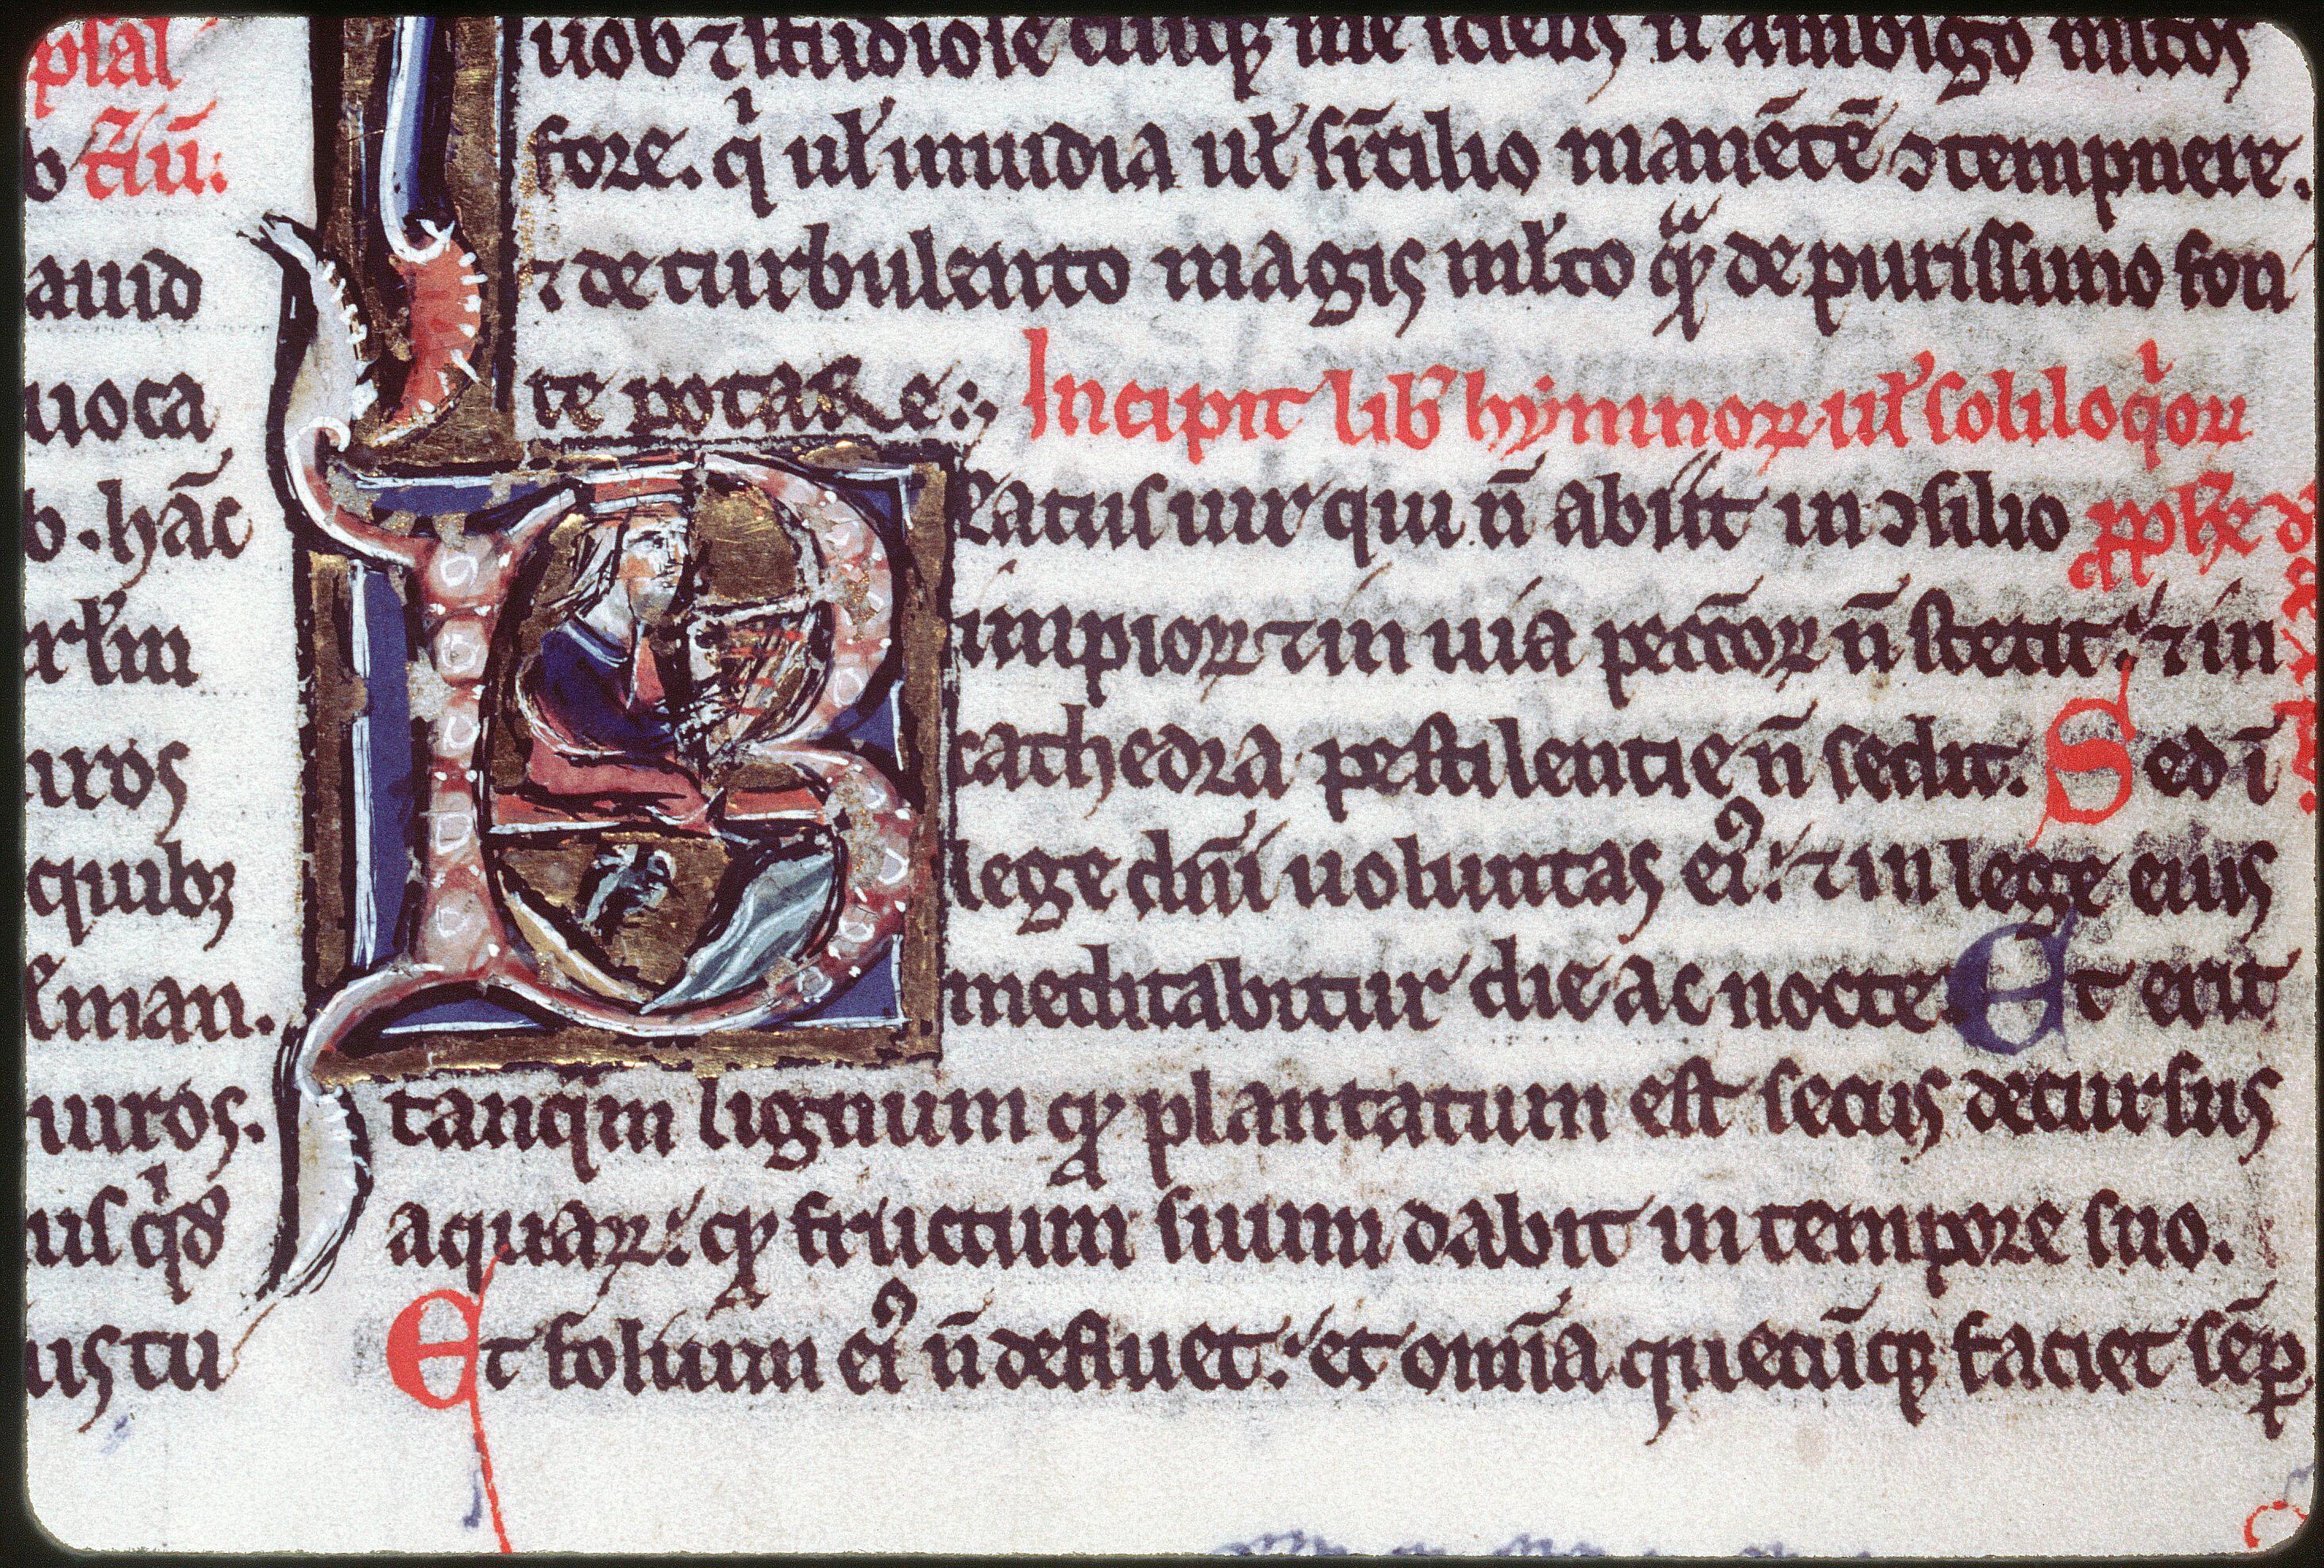 psal
b t̄lū:
auid
uoca
b. hāc
irłm
uros
quibꝫ
łman.
uiros.
us qͥd
us tu
uob ⁊ studiose cunqꝫ me sciens n̄ ambigo mltos
fore. qͥ ul̓ inuidia ul̓ sr̄cilio manētē ꝯtempnere.
⁊ de turbulento magis mlͣto qͣꝫ de purissimo fon
te potare:.
Incipit lib̓ hymnoꝝ ul̓ soliloqͥoꝝ
eatus uir qui n̄ abiit in ꝯsilio
ꝓphe d
impioꝝ ⁊ in uia pecc̄oꝝ n̄ stetit: ⁊ in
cathedra pestilentie n̄ sedit. Sed ī
lege dn̄i uoluntas eiꝰ: ⁊ in lege eius
meditabitur die ac nocte Et erit
tanqͣm lignum qđ plantatum est secus decursus
aquaꝝ: qđ fructum suum dabit in tempore suo.
Et folium eiꝰ n̄ defluet: et om̄ia quecūqꝫ faciet sēꝑ